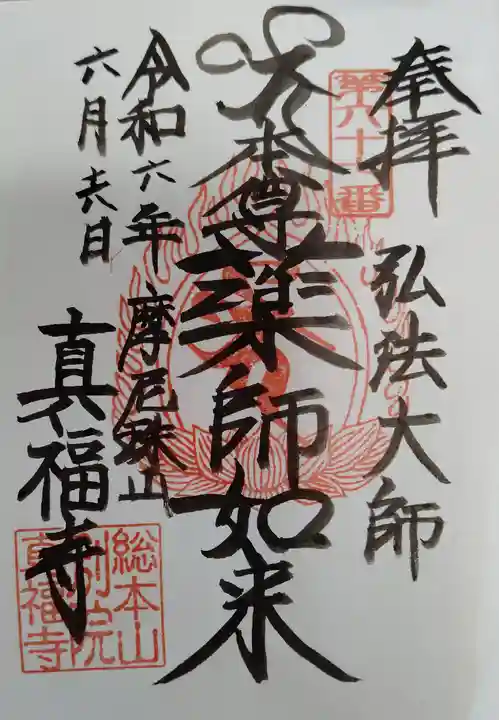 奉拝
弘法大師
第六十一番
大本尊薬師如来
令和六年
六月六日
摩尼珠山
真福寺
総本山
別院
真福寺